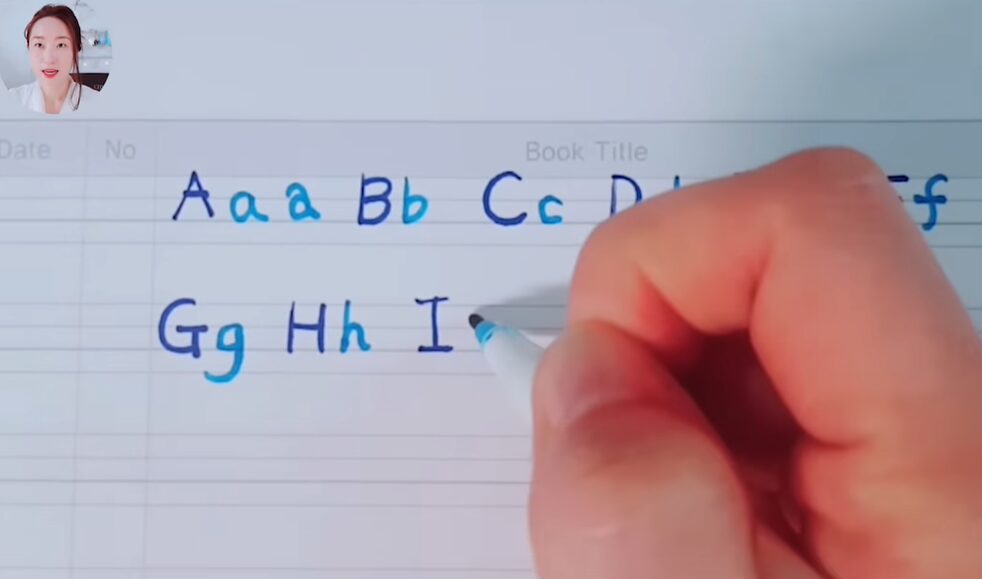 Date No Book Title
A a a Bb Cc D f
Gg Hh I